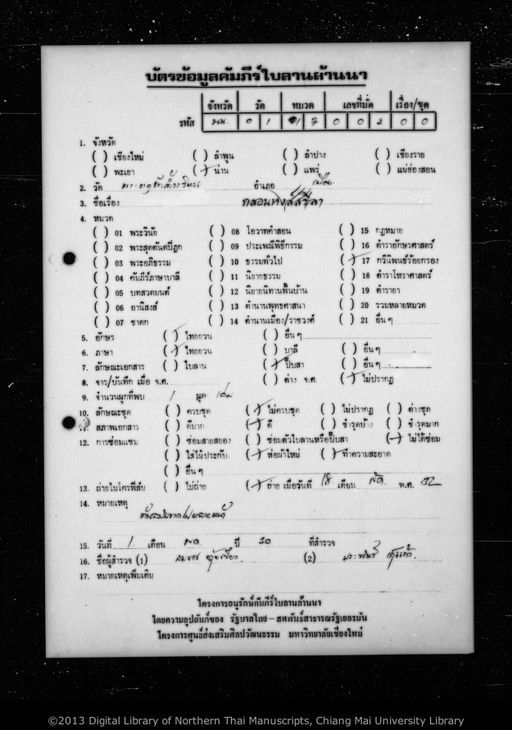 บัตรข้อมูลคัมภีร์ใบลานล้านนา
จังหวัด วัด หมวด เลขที่มัด เรื่อง/ชุด
รหัส นน. 0 1 1 7 0 0 2 0 0
1. จังหวัด
( ) เชียงใหม่ ( ) ลำพูน ( ) ลำปาง ( ) เชียงราย
( ) พะเยา ( ) น่าน ( ) แพร่ ( ) แม่ฮ่องสอน
2. วัด อำเภอ เมือง
3. ชื่อเรื่อง
4. หมวด
( ) 01 พระวินัย ( ) 08 โอวาทคำสอน ( ) 15 กฎหมาย
( ) 02 พระสุตตันตปิฎก ( ) 09 ประเพณีพิธีกรรม ( ) 16 ตำราอักษรศาสตร์
( ) 03 พระอภิธรรม ( ) 10 ธรรมทั่วไป ( ) 17 กวีนิพนธ์ร้อยกรอง
( ) 04 คัมภีร์ภาษาบาลี ( ) 11 นิยายธรรม ( ) 18 ตำราโหราศาสตร์
( ) 05 บทสวดมนต์ ( ) 12 นิยายนิทานพื้นบ้าน ( ) 19 ตำรายา
( ) 06 อานิสงส์ ( ) 13 ตำนานพุทธศาสนา ( ) 20 รวมหลายหมวด
( ) 07 ชาดก ( ) 14 ตำนานเมือง/ราชวงศ์ ( ) 21 อื่น ๆ
5. อักษร ( ) ไทยยวน ( ) อื่น ๆ
6. ภาษา ( ) ไทยยวน ( ) บาลี ( ) อื่น ๆ
7. ลักษณะเอกสาร ( ) ใบลาน ( ) ปั๊บสา ( ) อื่น ๆ
8. จาร/บันทึก เมื่อ จ.ศ. ( ) ต่าง จ.ศ. ( ) ไม่ปรากฏ
9. จำนวนผูกที่พบ 1 ผูก
10. ลักษณะชุด ( ) ครบชุด ( ) ไม่ครบชุด ( ) ไม่ปรากฏ ( ) ต่างชุด
11. สภาพเอกสาร ( ) ดีมาก ( ) ดี ( ) ชำรุดบ้าง ( ) ชำรุดมาก
12. การซ่อมแซม ( ) ซ่อมสายสยอง ( ) ซ่อมตัวใบลานหรือปั๊บสา ( ) ไม่ได้ซ่อม
( ) ใส่ไม้ประกับ ( ) ห่อผ้าใหม่ ( ) ทำความสะอาด
( ) อื่น ๆ
13. ถ่ายไมโครฟิล์ม ( ) ไม่ถ่าย ( ) ถ่าย เมื่อวันที่ 18 เดือน พ.ศ. 32
14. หมายเหตุ
15. วันที่ 1 เดือน พ.ค. ปี 30 ที่สำรวจ
16. ชื่อผู้สำรวจ (1) (2)
17. หมายเหตุเพิ่มเติม
โครงการอนุรักษ์คัมภีร์ใบลานล้านนา
โดยความอุปถัมภ์ของ รัฐบาลไทย - สหพันธ์สาธารณรัฐเยอรมัน
โครงการศูนย์ส่งเสริมศิลปวัฒนธรรม มหาวิทยาลัยเชียงใหม่
©2013 Digital Library of Northern Thai Manuscripts, Chiang Mai University Library